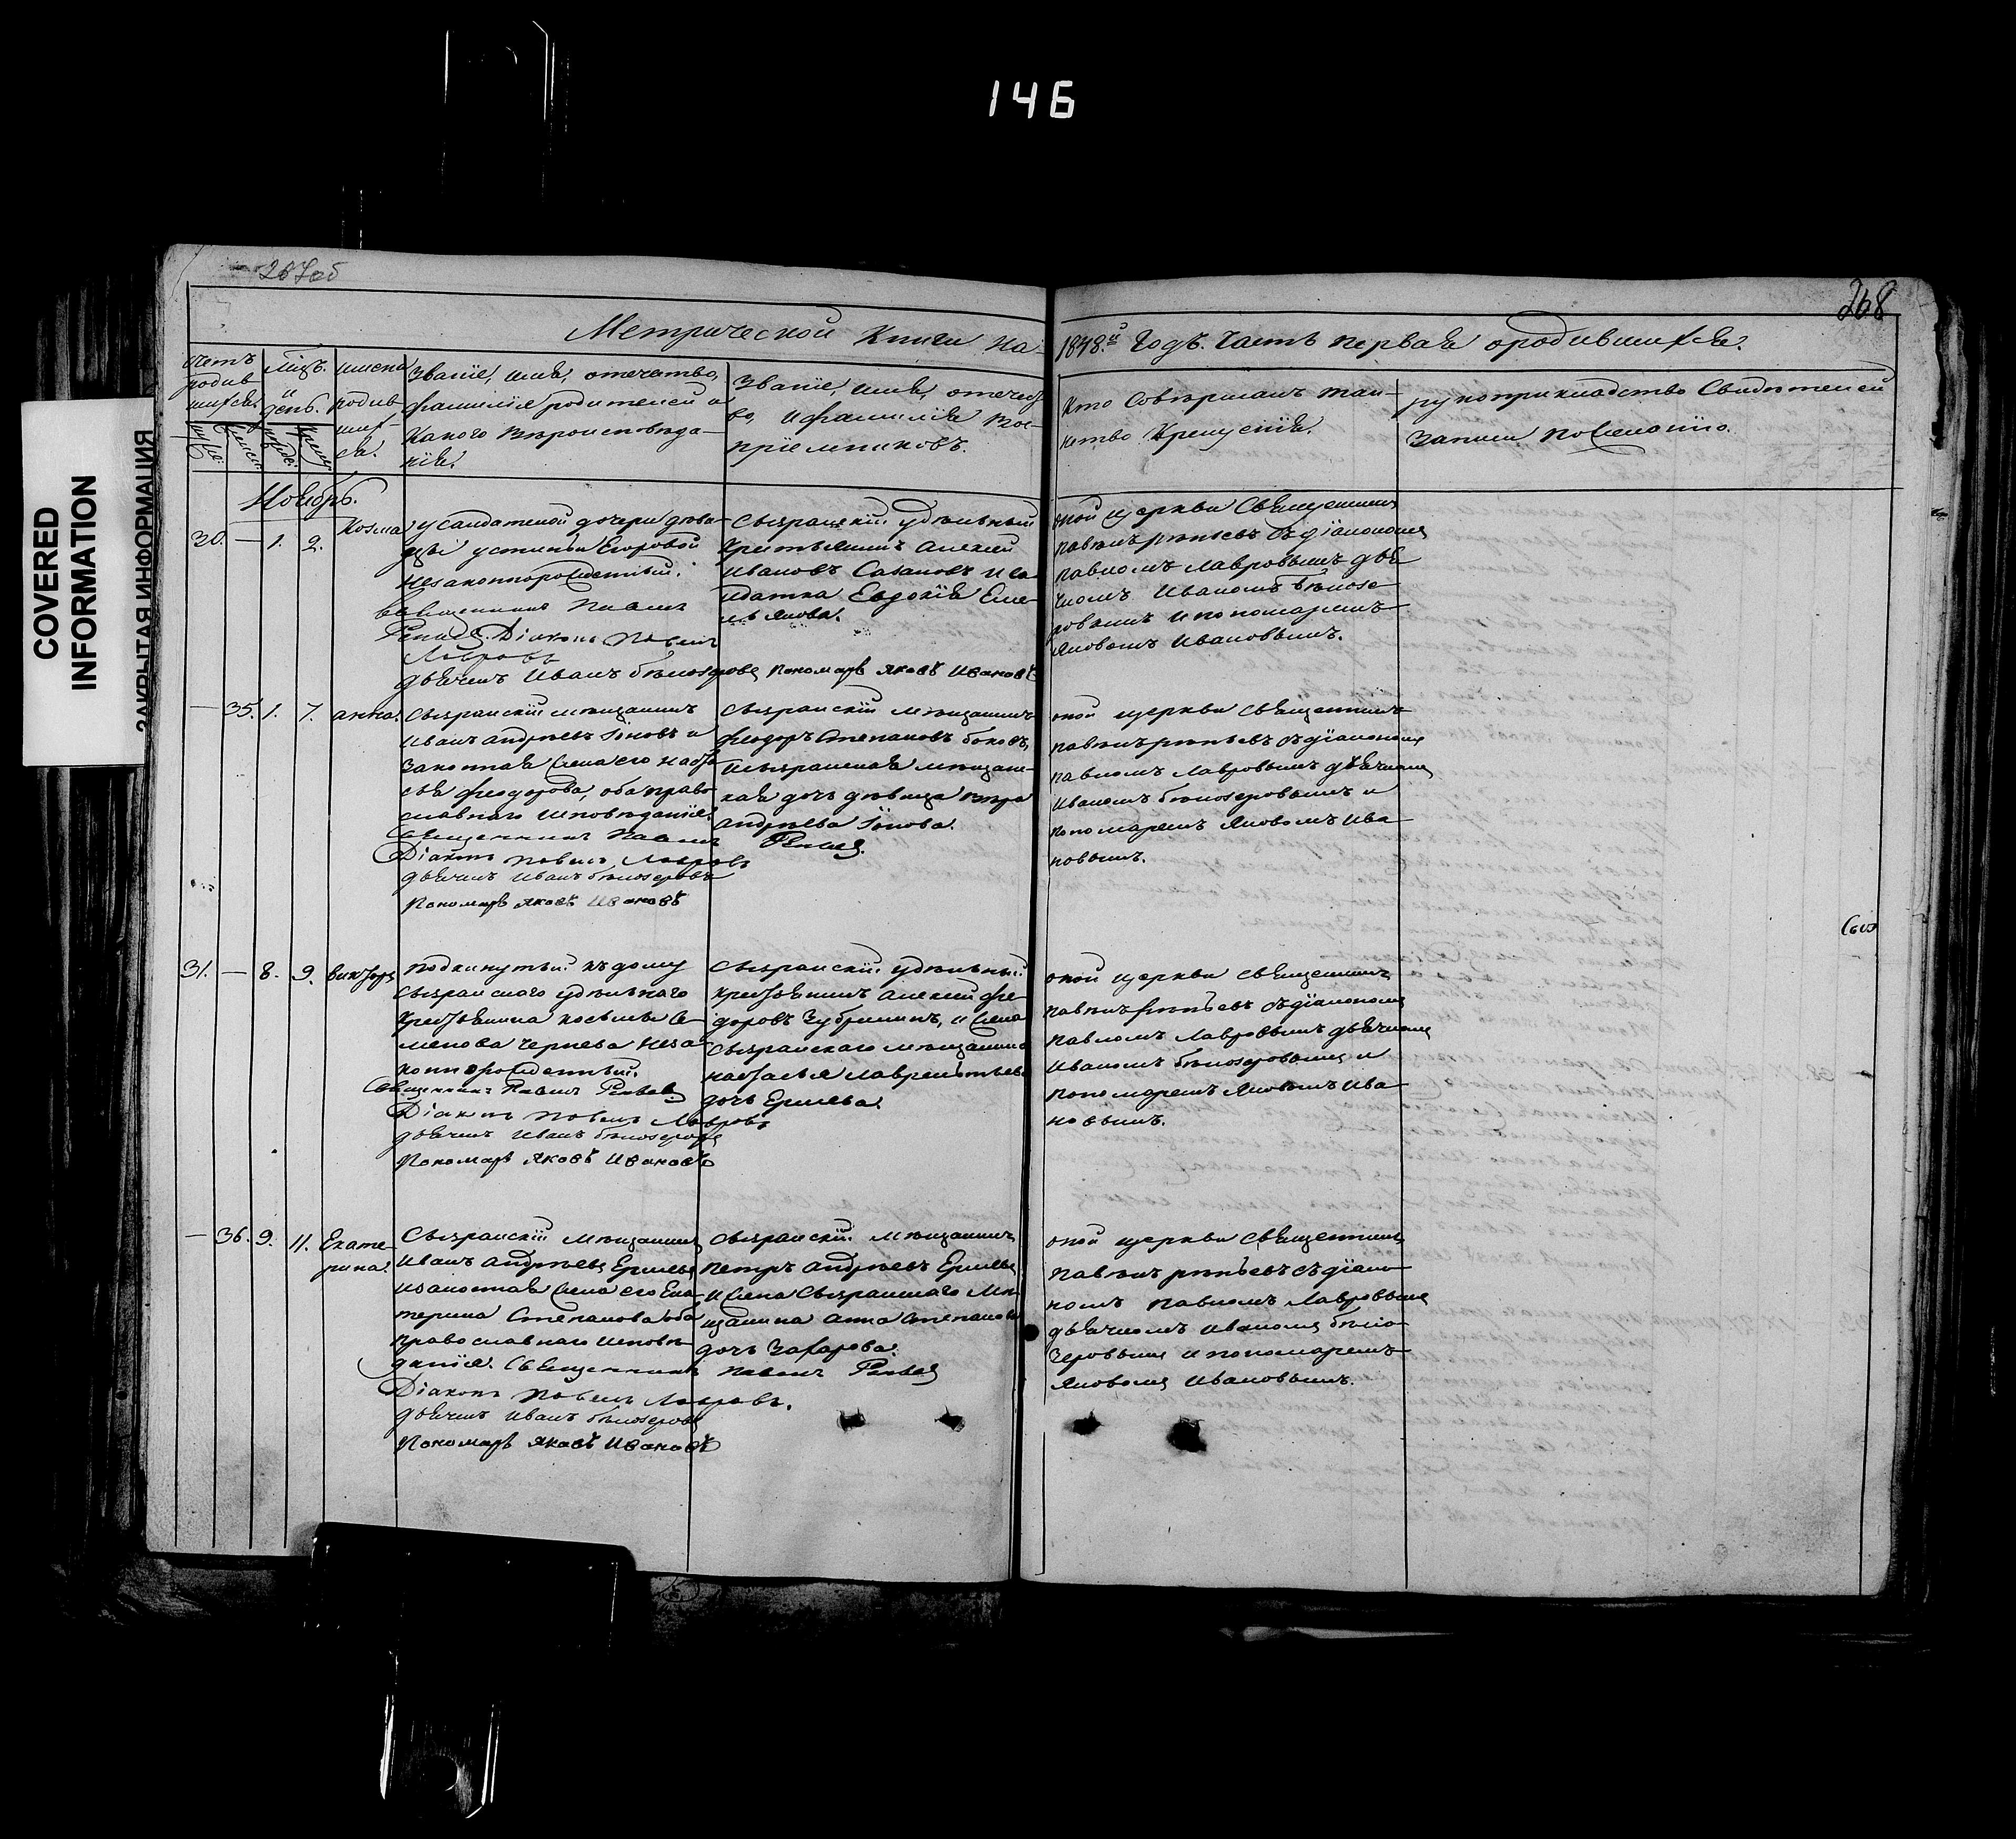 146
COVERED
INFORMATION
ЗАКРЫТАЯ ИНФОРМАЦИЯ
267об
268
Метрической Книги на
1848й Годъ. Часть первая о родившихся.
счетъ
родив
шихся.
Мцъ.
и
день.
имена
родив
ших
ся.
Званіе, имя, отечество,
фамилія родителей и
какого вѣроисповѣда-
нія.
Званіе, имя, отечест
во, и фамилія вос-
пріемниковъ.
Кто совершалъ таи-
нство Крещенія.
рукоприкладство Свидѣтелей
записи по желанію.
Ноябрь.
30. — 1. 2. Козма
у солдатской дочери дѣви
цы Устиньи Егоровой
незаконнорожденный.
Священникъ Павелъ
Діаконъ Павелъ
Лавровъ
дьячекъ Иванъ Бѣлозеровъ Пономарь Яковъ Ивановъ
Сызранскій удѣльный
крестьянинъ Алексей
Ивановъ Сазановъ и со
лдатка Евдокія Еме
льянова.
оной церкви Священникъ
Павелъ съ діакономъ
Павломъ Лавровымъ дья
чкомъ Иваномъ Бѣлозе
ровымъ и пономаремъ
Яковомъ Ивановымъ.
— 35. 1. 7. Анна.
Сызранскій мѣщанинъ
Иванъ Андреевъ Іоновъ и
законная жена его Наста
сья Феодорова, оба право
славнаго исповѣданія.
Священникъ Павелъ
Діаконъ Павелъ Лавровъ
дьячекъ Иванъ Бѣлозеровъ
Пономарь Яковъ Ивановъ
Сызранскій мѣщанинъ
Феодоръ Степановъ
и Сызранская мѣщанс-
кая дочь девица Вѣра
Андреева Іонова.
оной церкви Священникъ
Павелъ съ діакономъ
Павломъ Лавровымъ дьячкомъ
Иваномъ Бѣлозеровымъ и
пономаремъ Яковомъ Ива
новымъ.
31. — 8. 9. Викторъ
Подкинутый къ дому
Сызранского удѣльнаго
крестьянина Косьмы Се
менова Чернева неза
коннорожденный.
Священникъ Павелъ
Діаконъ Павелъ Лавровъ
дьячекъ Иванъ Бѣлозеровъ
Пономарь Яковъ Ивановъ
Сызранскій удѣльный
крестьянинъ Алексей Фе
доровъ Зубрилинъ, и жена
Сызранскаго мѣщанина
Настасья Лаврентьева
дочь Ермева.
оной церкви Священникъ
Павелъ съ діакономъ
Павломъ Лавровымъ дьячкомъ
Иваномъ Бѣлозеровымъ и
пономаремъ Яковомъ Ива
новымъ.
— 36. 9. 11. Екате-
рина.
Сызранскій мѣщанинъ
Иванъ Андреевъ
и законная жена его Ека
терина Степанова оба
православнаго исповѣ
данія. Священникъ Павелъ
Діаконъ Павелъ Лавровъ.
дьячекъ Иванъ Бѣлозеровъ
Пономарь Яковъ Ивановъ
Сызранскій мѣщанинъ
Петръ Андреевъ
и жена Сызранскаго мѣ
щанина Анна Степанова
дочь Захарова.
оной церкви Священникъ
Павелъ съ діако
номъ Павломъ Лавровымъ
дьячкомъ Иваномъ Бѣло
зеровымъ и пономаремъ
Яковомъ Ивановымъ.